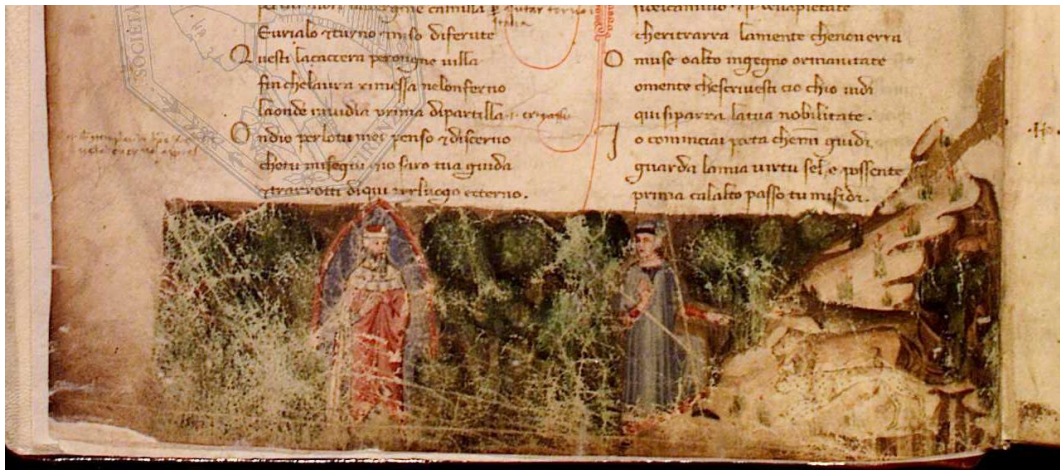 camilla
Italia
Eurialo ⁊ turno ⁊ niso diferute
Questi lacaccera perongne uilla
fin chelaura rimessa nelonferno
laonde inuidia prima dipartilla
Ondio perlotuo me penso ⁊ discerno
chetu misegui ⁊ io saro tua guida
⁊trarrotti diqui perluogo ecterno.
sidelcamino ⁊ si delapietate
cheritrarra lamente chenon erra
O muse oalto ingegno ormaiutate
omente chescriuesti cio chio uidi
quisiparra latua nobilitate.
Io cominciai poeta chemi guidi
guarda lamia uirtu sel e possente
prima calalto passo tu mifidi.